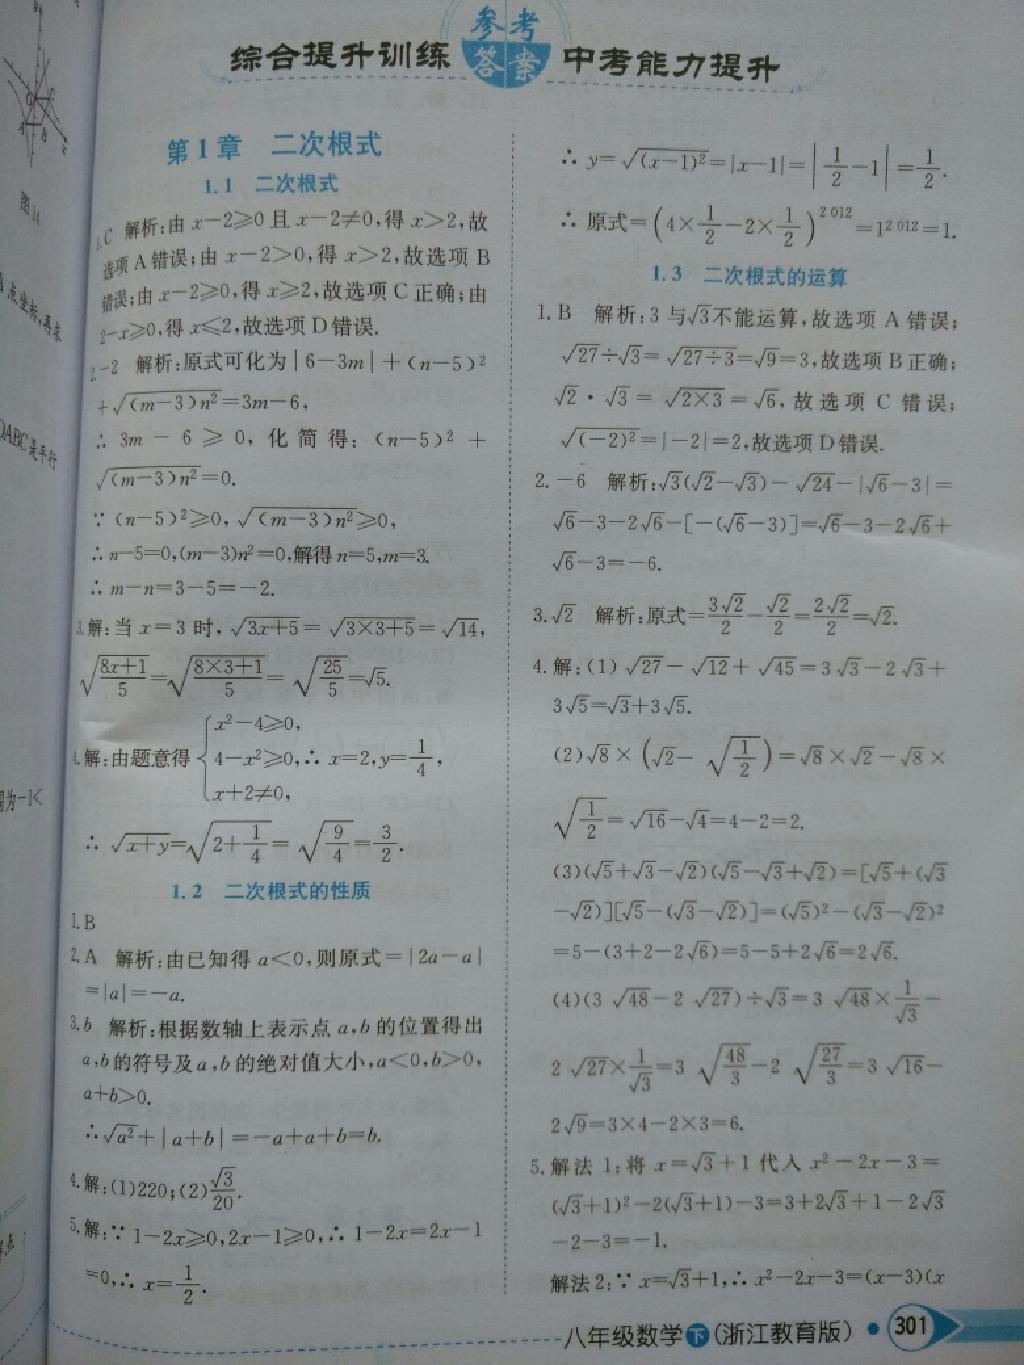 图14
点坐标,再求
OABC是平行
围为-1<
综合提升训练 参考答案 中考能力提升
第1章 二次根式
1.1 二次根式
1.C 解析:由 x-2≥0 且 x-2≠0,得 x>2,故
选项 A 错误;由 x-2>0,得 x>2,故选项 B
错误;由 x-2≥0,得 x≥2,故选项 C 正确;由
2-x≥0,得 x≤2,故选项 D 错误.
2.-2 解析:原式可化为|6-3m|+(n-5)²
+√((m-3)n²)=3m-6,
∴ 3m-6≥0,化简得:(n-5)²+
√((m-3)n²)=0.
∵(n-5)²≥0,√((m-3)n²)≥0,
∴n-5=0,(m-3)n²=0,解得 n=5,m=3.
∴m-n=3-5=-2.
3.解:当 x=3 时,√(3x+5)=√(3×3+5)=√14,
√((8x+1)/5)=√((8×3+1)/5)=√(25/5)=√5.
4.解:由题意得{x²-4≥0, 4-x²≥0, x+2≠0, ∴x=2,y=1/4,
∴√(x+y)=√(2+1/4)=√(9/4)=3/2.
1.2 二次根式的性质
1.B
2.A 解析:由已知得 a<0,则原式=|2a-a|
=|a|=-a.
3.b 解析:根据数轴上表示点 a,b 的位置得出
a,b 的符号及 a,b 的绝对值大小,a<0,b>0,
a+b>0.
∴√(a²)+|a+b|=-a+a+b=b.
4.解:(1)220;(2)√3/20.
5.解:∵1-2x≥0,2x-1≥0,∴1-2x=2x-1
=0,∴x=1/2.
∴y=√((x-1)²)=|x-1|=|1/2-1|=1/2.
∴原式=(4×1/2-2×1/2)^2012=1^2012=1.
1.3 二次根式的运算
1.B 解析:3 与√3不能运算,故选项 A 错误;
√27÷√3=√(27÷3)=√9=3,故选项 B 正确;
√2·√3=√(2×3)=√6,故选项 C 错误;
√((-2)²)=|-2|=2,故选项 D 错误.
2.-6 解析:√3(√2-√3)-√24-|√6-3|=
√6-3-2√6-[-(√6-3)]=√6-3-2√6+
√6-3=-6.
3.√2 解析:原式=3√2/2-√2/2=2√2/2=√2.
4.解:(1)√27-√12+√45=3√3-2√3+
3√5=√3+3√5.
(2)√8×(√2-√(1/2))=√8×√2-√8×
√(1/2)=√16-√4=4-2=2.
(3)(√5+√3-√2)(√5-√3+√2)=[√5+(√3
-√2)][√5-(√3-√2)]=(√5)²-(√3-√2)²
=5-(3+2-2√6)=5-5+2√6=2√6.
(4)(3√48-2√27)÷√3=3√48×1/√3-
2√27×1/√3=3√(48/3)-2√(27/3)=3√16-
2√9=3×4-2×3=6.
5.解法 1:将 x=√3+1 代入 x²-2x-3=
(√3+1)²-2(√3+1)-3=3+2√3+1-2√3
-2-3=-1.
解法 2:∵x=√3+1,∴x²-2x-3=(x-3)(x
八年级数学下(浙江教育版) 301